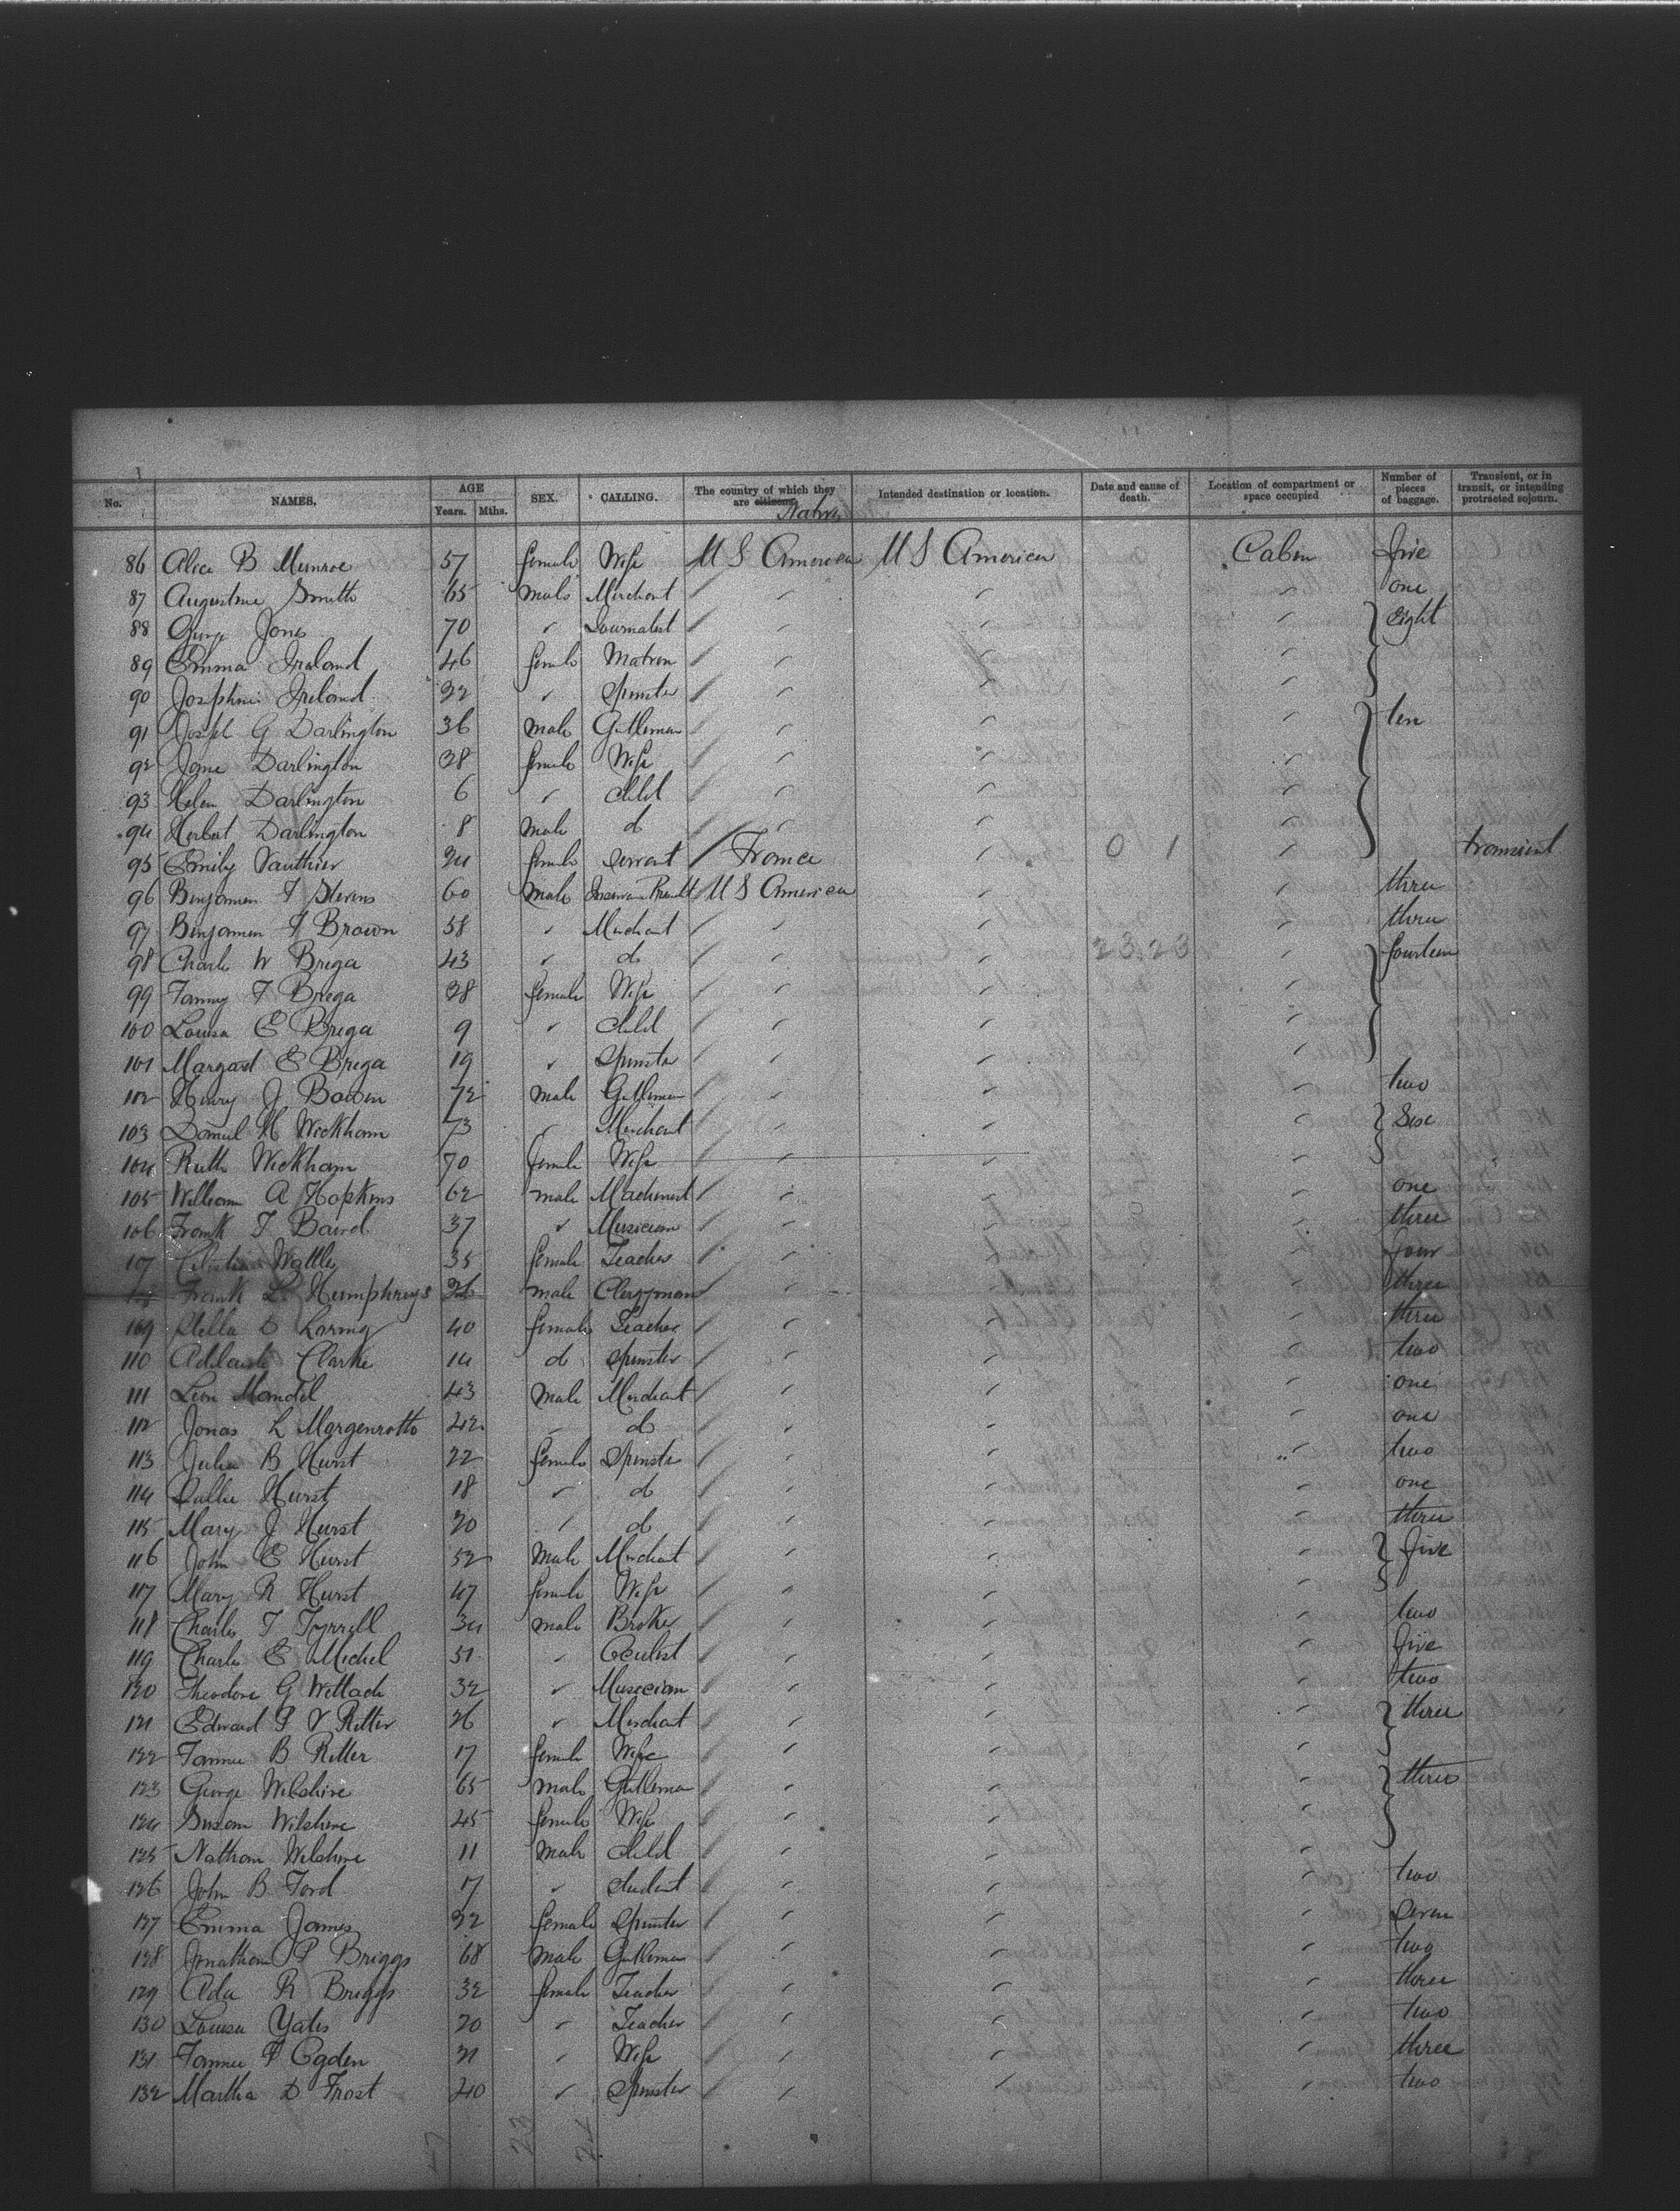 No. NAMES. AGE Years. Mths. SEX. CALLING. The country of which they are citizens. Native Intended destination or location. Date and cause of death. Location of compartment or space occupied Number of pieces of baggage. Transient, or in transit, or intending protracted sojourn.
86 Alice B Munroe 57 female Wife U S America U S America Cabin five
87 Augustine Smith 65 male Merchant " " " one
88 George Jones 70 " Journalist " " " eight
89 Emma Ireland 46 female Matron " " "
90 Josephine Ireland 22 " Spinster " " "
91 Joseph G Darlington 36 male Gentleman " " " ten
92 Jane Darlington 28 female Wife " " "
93 Helen Darlington 6 " Child " " "
94 Herbert Darlington 8 male do " "
95 Emily Vauthier 24 female Servant France " 0 1 " transient
96 Benjamin F Stevens 60 male U S America " " three
97 Benjamin F Brown 58 " Merchant " " " three
98 Charles W Brega 43 " do " " 23.23 " fourteen
99 Fanny F Brega 38 female Wife " " "
100 Louisa E Brega 9 " Child " " "
101 Margaret E Brega 19 " Spinster " " "
102 Henry J Bowen 72 male Gentleman " " " two
103 Daniel H Wickham 73 " Merchant " " " Six
104 Ruth Wickham 70 female Wife " " "
105 William A Hopkins 62 male Machinist " " " one
106 Frank F Baird 37 " Musician " " " three
107 Wattles 35 female Teacher " " " four
108 Frank L Humphreys male Clergyman " " " three
109 Stella D Loring 40 female Teacher " " " three
110 Adelaide Clarke 14 do Spinster " " " two
111 Leon Mandel 43 male Merchant " " " one
112 Jonas L Morgenroth 42 " do " " " one
113 Julia B Hurst 22 female Spinster " " " two
114 Sallie Hurst 18 " do " " " one
115 Mary J Hurst 20 " do " " " three
116 John E Hurst 52 Male Merchant " " " five
117 Mary R Hurst 47 female Wife " " "
118 Charles T Tyrrell 34 male Broker " " " two
119 Charles E Michel 51 " Oculist " " " five
120 Theodore G Wettach 32 " Musician " " " two
121 Edward P V Ritter 26 " Merchant " " " three
122 Fannie B Ritter 17 female Wife " " "
123 George Wilshire 65 male Gentleman " " " three
124 Susan Wilshire 45 female Wife " " "
125 Nathan Wilshire 11 Male Child " " "
126 John B Ford 17 " Student " " " two
127 Emma James 32 female Spinster " " " Seven
128 Jonathan P Briggs 68 Male Gentleman " " " two
129 Ada R Briggs 32 female Teacher " " " three
130 Louisa Yates 20 " Teacher " " " two
131 Fannie F Ogden 31 " Wife " " " three
132 Martha D Frost 40 " Spinster " " " two
47 23 24